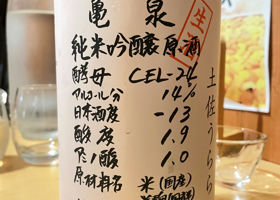 亀泉
生酒
純米吟醸原酒
酵母 CEL-24
アルコール分 14%
日本酒度 -13
酸度 1.9
アミノ酸 1.0
原材料名 米(国産)
土佐うらら